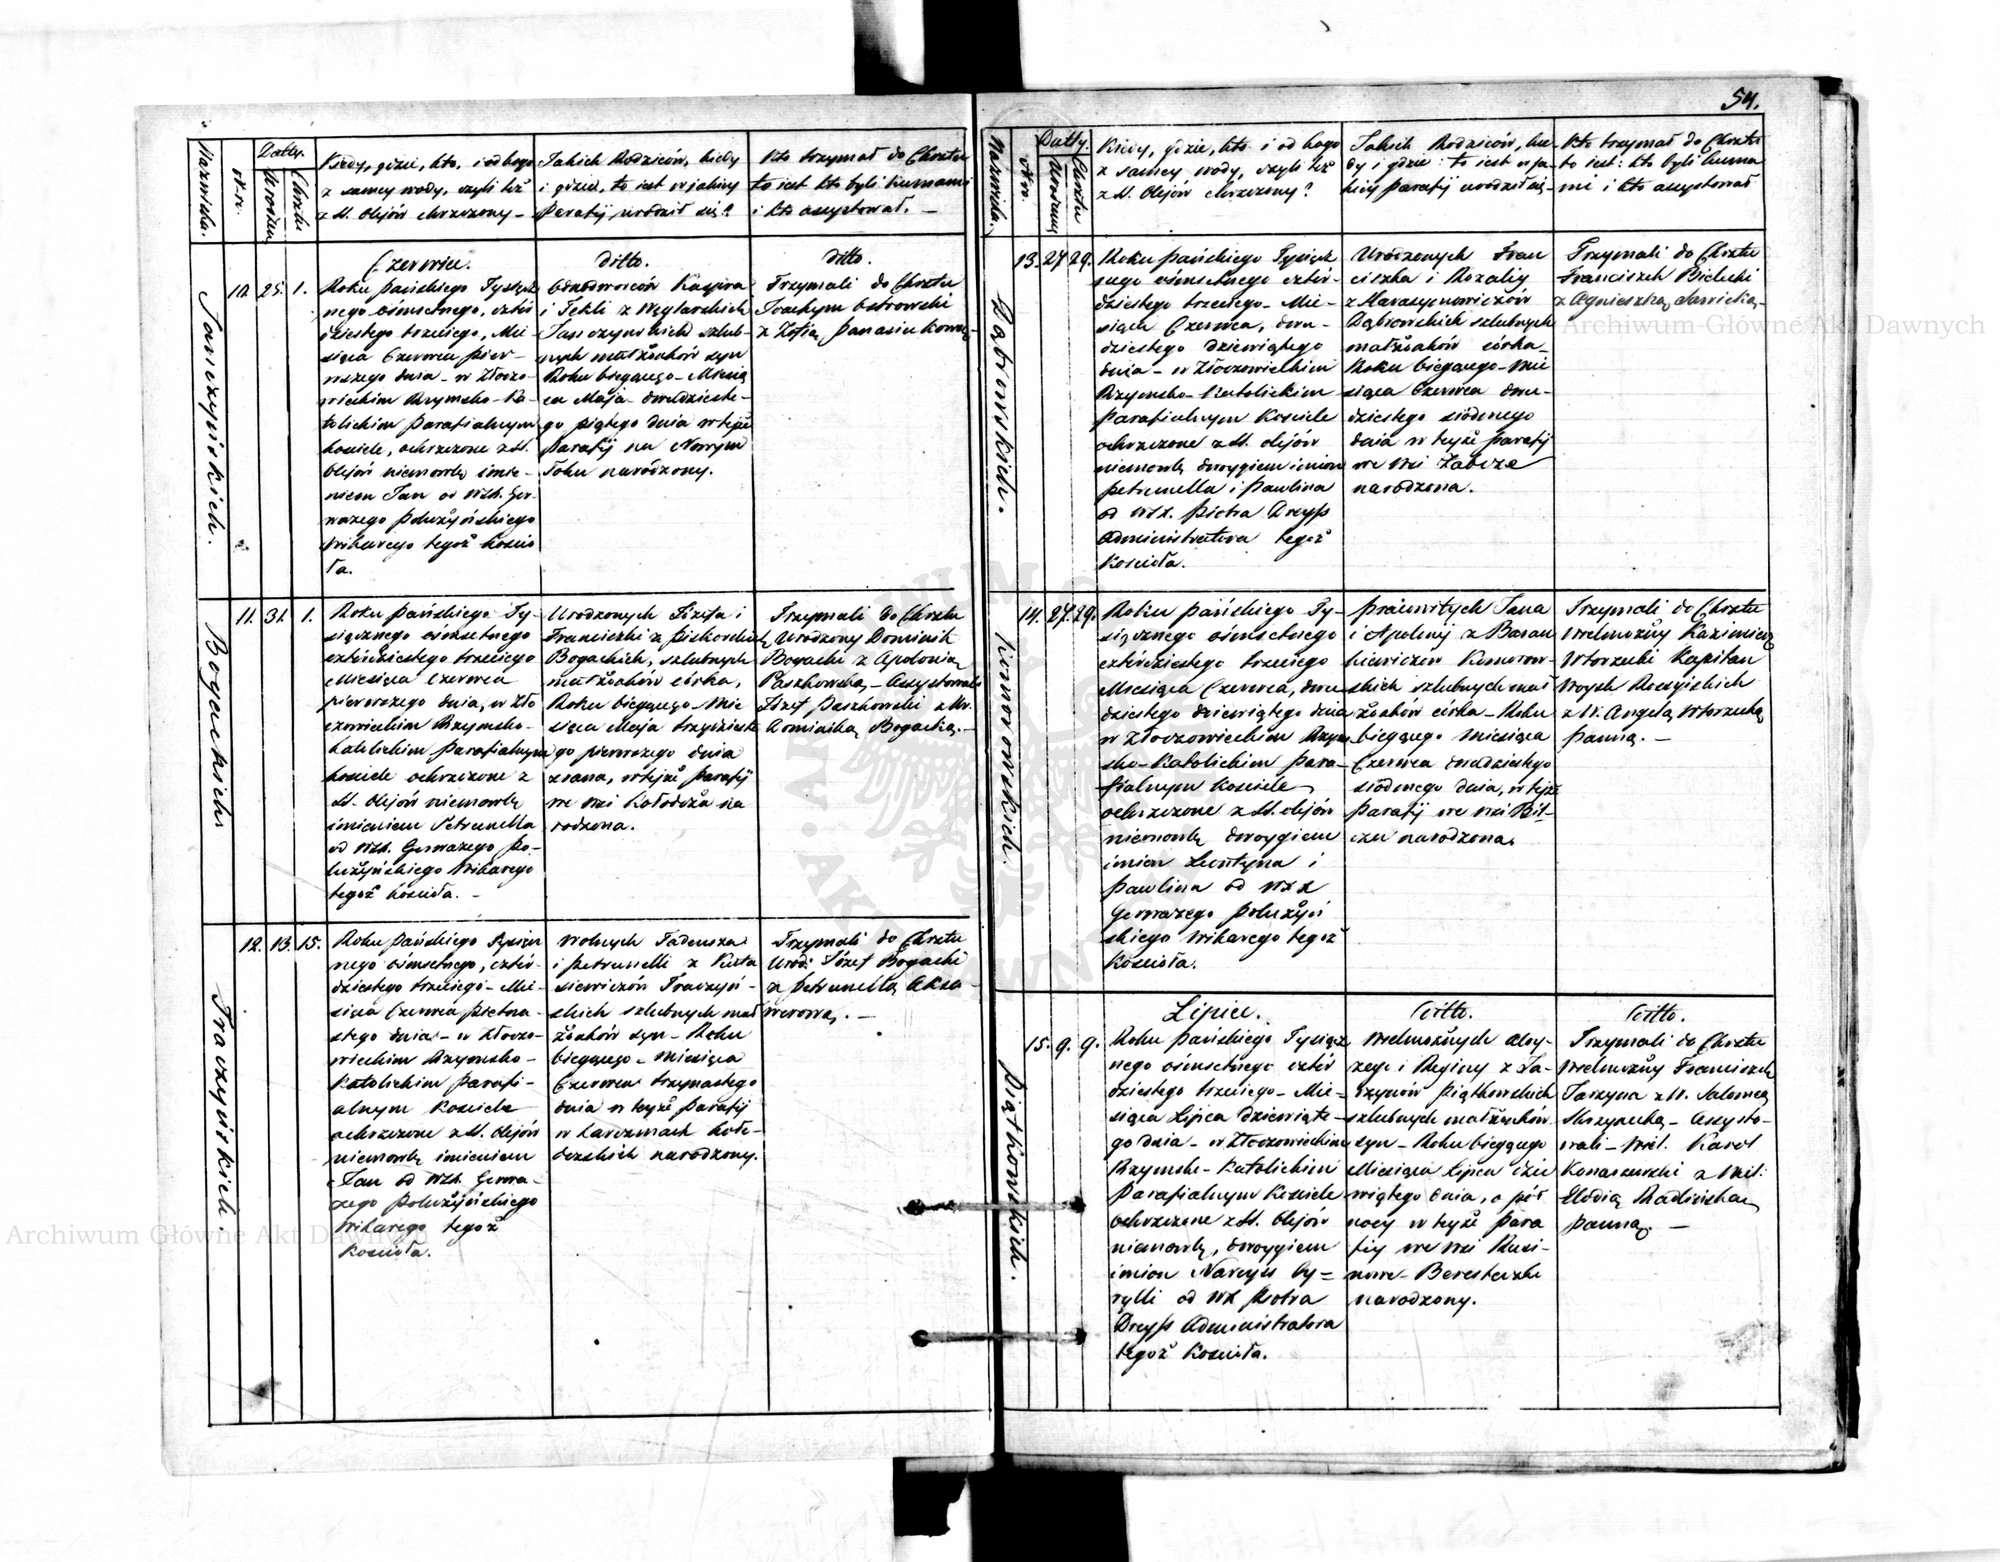 54.
Nazwiska.
Nr.
Datty.
Urodzin
Chrztu
Kiedy, gdzie, kto, i od kogo
z samey wody, czyli też
z S. Olejów chrzczony –
Jakich Rodziców, kiedy
i gdzie, to iest w jakiey
Parafij urodził się?
Kto trzymał do Chrztu
to iest kto byli Kumami
i kto assystował. –
Janczyńskich.
10.
25.
1.
Czerwiec.
Roku Pańskiego Tysiącz
nego ośmsetnego, czter
dziestego trzeciego, Mie
siąca Czerwca pier-
wszego dnia – w Złoczo-
wieckim Rzymsko-Ka-
tolickim Parafialnym
kosciele, ochrzczone z S.
Olejów niemowlę imie-
niem Jan od WX. Ger-
wazego Połużyńskiego
Wikarego tegoż kościo
ła.
ditto.
Jednodworców Kazimira
i Tekli z Węglarskich
Janczyńskich szlub-
nych małżonków syn
Roku bieżącego – Miesią
ca Maja – dwudzieste-
go piątego dnia w teyże
Parafij na Nowym
Toku narodzony.
ditto.
Trzymali do Chrztu
Joachym Ostrowski
z Zofią Panasiukowną
Bogackich
11.
31.
1.
Roku Pańskiego Ty-
siącznego ośmsetnego
czterdziestego trzeciego
Miesiąca Czerwca
pierwszego dnia, w Zło
czowieckim Rzymsko-
Katolickim Parafialnym
kosciele ochrzczone z
S. Olejów niemowlę
imieniem Petrunella
od WX. Gerwazego Po-
łużyńskiego Wikarego
tegoż koscioła. –
Urodzonych Józefa i
Franciszki z
Bogackich, szlubnych
małżonków córka,
Roku bieżącego – Mie
siąca Maja trzydzieste
go pierwszego dnia
zrana, w teyże Parafij
we wsi Kołodeża na
rodzona.
Trzymali do Chrztu
Urodzony Dominik
Bogacki z Apolonią
Paszkowską – Assystowali
Józef Paszkowski z Ur.
Dominiką Bogacką. –
Traczyńskich.
12.
13.
15.
Roku Pańskiego Tysiącz
nego ośmsetnego, czter-
dziestego trzeciego – Mie-
siąca Czerwca Piętna-
stego dnia – w Złoczo-
wieckim Rzymsko-
Katolickim Parafi-
alnym Kosciele
ochrzczone z S. Olejów
niemowlę imieniem
Jan od WX. Gerwa-
zego Połużyńskiego
Wikarego tegoż
Koscioła.
Wolnych Tadeusza
i Petrunelli z
Traczyń-
skich szlubnych mał
żonków syn – Roku
bieżącego – Miesiąca
Czerwca trzynastego
dnia w teyże Parafij
w Karczmach Koło-
deżskich narodzony.
Trzymali do Chrztu
Urod: Józef Bogacki
z Petrunellą Aksa-
werową. –
Nazwiska.
Nr.
Datty.
Urodzin
Chrztu
Kiedy, gdzie, kto i od kogo
z samey wody, czyli też
z S. Olejów chrzczony?
Jakich Rodziców, kie
dy i gdzie: to iest w ja-
kiey Parafij urodził się –
Kto trzymał do Chrztu
to iest: kto byli kuma
mi i kto assystował
Dąbrowskich.
13.
27
29.
Roku Pańskiego Tysiącz
nego ośmsetnego czter-
dziestego trzeciego – Mie-
siąca Czerwca, dwu-
dziestego dziewiątego
dnia – w Złoczowieckim
Rzymsko-Katolickim
Parafialnym Kosciele
ochrzczone z S. olejów
niemowlę dwoygiem imion
Petrunella i Paulina
od WX. Piotra Dreyss
Administratora tegoż
Koscioła.
Urodzonych Fran
ciszka i Rozalij
z Harasymowiczów
Dąbrowskich szlubnych
małżonków córka –
Roku bieżącego – Mie
siąca Czerwca dwu-
dziestego siódmego
dnia w teyże Parafij
we Wsi Zabcze
narodzona.
Trzymali do Chrztu
Franciszek Bielecki
z Agnieszką Sawicką –
Komorowskich.
14.
27.
29.
Roku Pańskiego Ty-
siącznego ośmsetnego
czterdziestego trzeciego
Miesiąca Czerwca, dwu
dziestego dziewiątego dnia
w Złoczowieckim Rzym
sko-Katolickim Para-
fialnym Kosciele
ochrzczone z S. olejów
niemowlę dwoygiem
imion Leontyna i
Paulina od WXX
Gerwazego Połużyń
skiego Wikarego tegoż
Kościoła.
Pracowitych Jana
i Apolonij z Baran
kiewiczow Komorow-
skich szlubnych mał
żonków córka – Roku
bieżącego Miesiąca
Czerwca dwudziestego
siódmego dnia, w teyże
Parafij we wsi
czu narodzona.
Trzymali do Chrztu
Wielmożny Kazimierz
Wtorzecki Kapitan
Woysk Rossyiskich
z W. Angelą Wtorzecką
Panną. –
Piątkowskich.
15.
9.
9.
Lipiec.
Roku Pańskiego Tysiącz
nego ośmsetnego czter
dziestego trzeciego – Mie-
siąca Lipca dziewiąte-
go dnia – w Złoczowieckim
Rzymsko-Katolickim
Parafialnym Kosciele
ochrzczone z S. Olejów
niemowlę, dwoygiem
imion Narcyz Cy=
rylli od WX Piotra
Dreyss Administratora
tegoż Koscioła.
Ditto.
Wielmożnych Aloy-
zego i Reginy z Ja-
rzynów Piątkowskich
szlubnych małżonków
syn – Roku bieżącego
Miesiąca Lipca dzie
wiątego dnia, o pół
nocy w teyże Para
fij we wsi Kusi-
nowe-Beresteczko
narodzony.
Ditto.
Trzymali do Chrztu
Wielmożny Franciszek
Jarzyna z W. Salomeą
Skrzynecką – Assysto-
wali – Wiel. Karol
Konaszewski z Wiel:
Elodią Radlińską
Panną. –
Archiwum Główne Akt Dawnych
Archiwum Główne Akt Dawnych